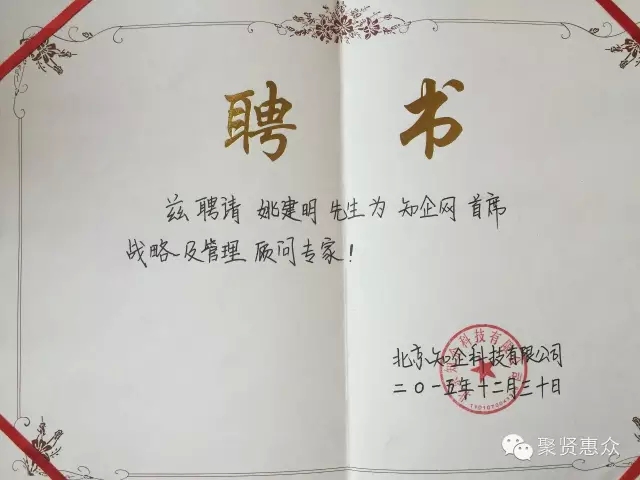 聘书
兹聘请 姚建明 先生为 知企网 首席
战略及管理 顾问专家!
北京知企科技有限公司
二〇一五年十二月三十日
聚贤惠众